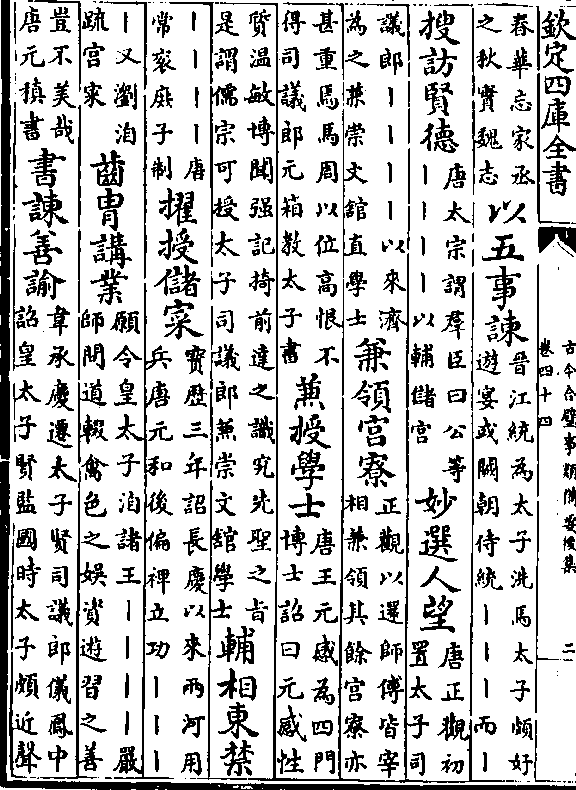 欽定四庫全書
古今合璧事類備要後集
卷四十四
二
春華忘家丞
之秋實魏志
以五事諫
晉江統為太子洗馬太子頗好
遊宴或闕朝侍統丨丨丨丨而丨
搜訪賢德
唐太宗謂羣臣曰公等
丨丨丨丨以輔儲宮
妙選人望
唐正觀初
置太子司
議郎丨丨丨丨以來濟
為之兼崇文館直學士
兼領宮寮
正觀以還師傅皆宰
相兼領其餘宮寮亦
甚重焉馬周以位高恨不
得司議郎元箱教太子書
兼授學士
唐王元感為四門
博士詔曰元感性
質温敏博聞强記掎前達之識究先聖之旨
是謂儒宗可授太子司議郎兼崇文館學士
輔相東禁
丨丨丨丨唐
常袞庶子制
擢授儲寀
寶歷三年詔長慶以來兩河用
兵唐元和後偏禆立功丨丨丨
丨又劉洎
疏宮寀
齒胄講業
願令皇太子洎諸王丨丨丨丨嚴
師問道輟禽色之娯資遊習之善
豈不美哉
唐元稹書
書諫善諭
韋承慶遷太子賢司議郎儀鳳中
詔皇太子賢監國時太子頗近聲